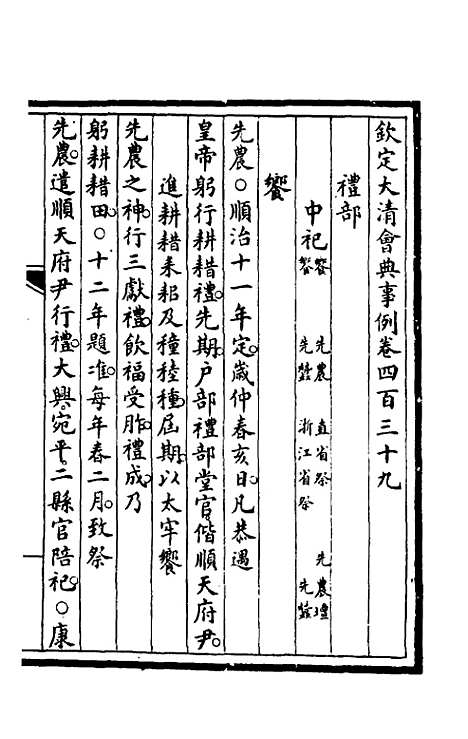 欽定大清會典事例卷四百三十九
禮部
中祀 饗先農 直省祭先農壇 饗先蠶 浙江省祭先蠶
饗
先農○順治十一年定。歲仲春亥日。凡恭遇
皇帝躬行耕耤禮。先期。户部禮部堂官。偕順天府尹。
進耕耤耒耜及穜稑種。屆期。以太牢饗
先農之神。行三獻禮。飲福受胙。禮成。乃
躬耕耤田。○十二年題准。每年春二月。致祭
先農。遣順天府尹行禮。大興。宛平。二縣官陪祀。○康